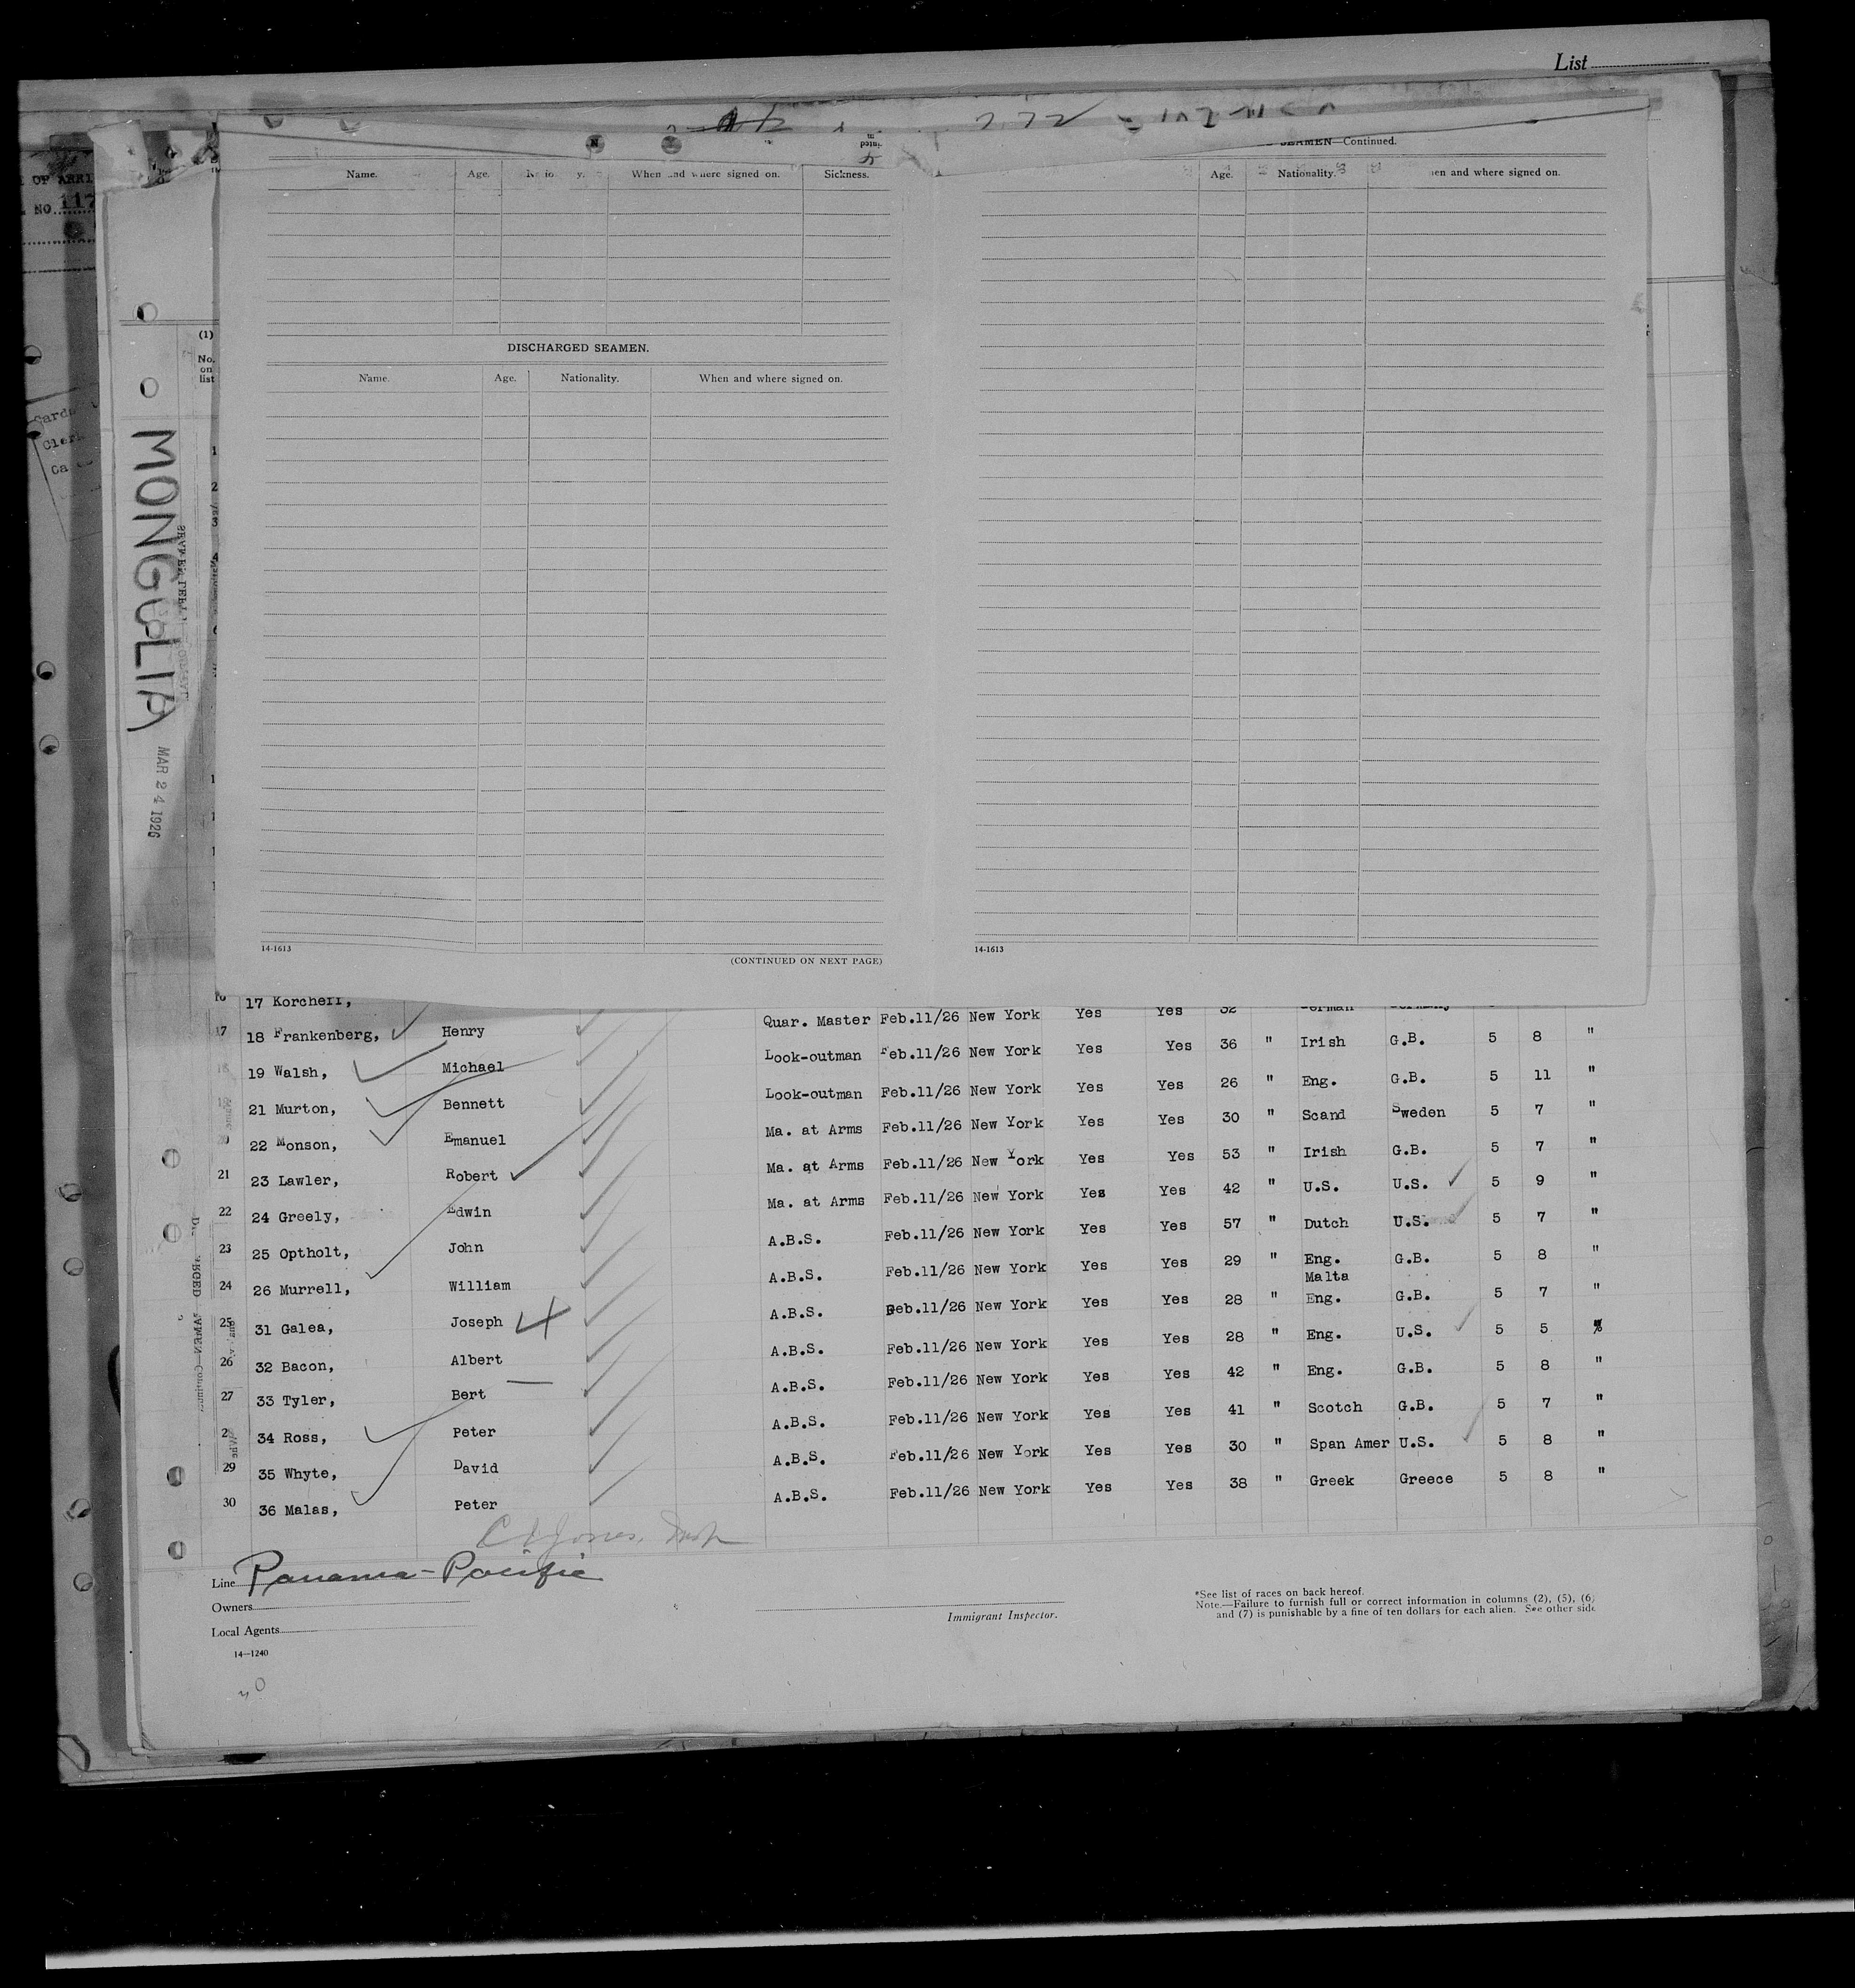 List
SEAMEN—Continued.
Name. Age. When and where signed on. Sickness.
Age. Nationality. and where signed on.
OF ARRI
NO 117
DISCHARGED SEAMEN.
Name. Age. Nationality. When and where signed on.
(1)
No. on list
MONGOLIA
MAR 24 1926
14-1613
14-1613
(CONTINUED ON NEXT PAGE)
16 17 Korcheff,
17 18 Frankenberg, Henry Quar. Master Feb.11/26 New York Yes Yes 32 German Germany
19 Walsh, Michael Look-outman Feb.11/26 New York Yes Yes 36 " Irish G.B. 5 8 "
21 Murton, Bennett Look-outman Feb.11/26 New York Yes Yes 26 " Eng. G.B. 5 11 "
22 Monson, Emanuel Ma. at Arms Feb.11/26 New York Yes Yes 30 " Scand Sweden 5 7 "
21 23 Lawler, Robert Ma. at Arms Feb.11/26 New York Yes Yes 53 " Irish G.B. 5 7 "
22 24 Greely, Edwin Ma. at Arms Feb.11/26 New York Yes Yes 42 " U.S. U.S. 5 9 "
23 25 Optholt, John A.B.S. Feb.11/26 New York Yes Yes 57 " Dutch U.S. 5 7 "
24 26 Murrell, William A.B.S. Feb.11/26 New York Yes Yes 29 " Eng. G.B. 5 8 "
Malta
25 31 Galea, Joseph A.B.S. Feb.11/26 New York Yes Yes 28 " Eng. G.B. 5 7 "
26 32 Bacon, Albert A.B.S. Feb.11/26 New York Yes Yes 28 " Eng. U.S. 5 5
27 33 Tyler, Bert A.B.S. Feb.11/26 New York Yes Yes 42 " Eng. G.B. 5 8 "
34 Ross, Peter A.B.S. Feb.11/26 New York Yes Yes 41 " Scotch G.B. 5 7 "
29 35 Whyte, David A.B.S. Feb.11/26 New York Yes Yes 30 " Span Amer U.S. 5 8 "
30 36 Malas, Peter A.B.S. Feb.11/26 New York Yes Yes 38 " Greek Greece 5 8 "
Line Panama-Pacific
Owners
Local Agents
14-1240
Immigrant Inspector.
*See list of races on back hereof.
Note.—Failure to furnish full or correct information in columns (2), (5), (6)
and (7) is punishable by a fine of ten dollars for each alien. See other side